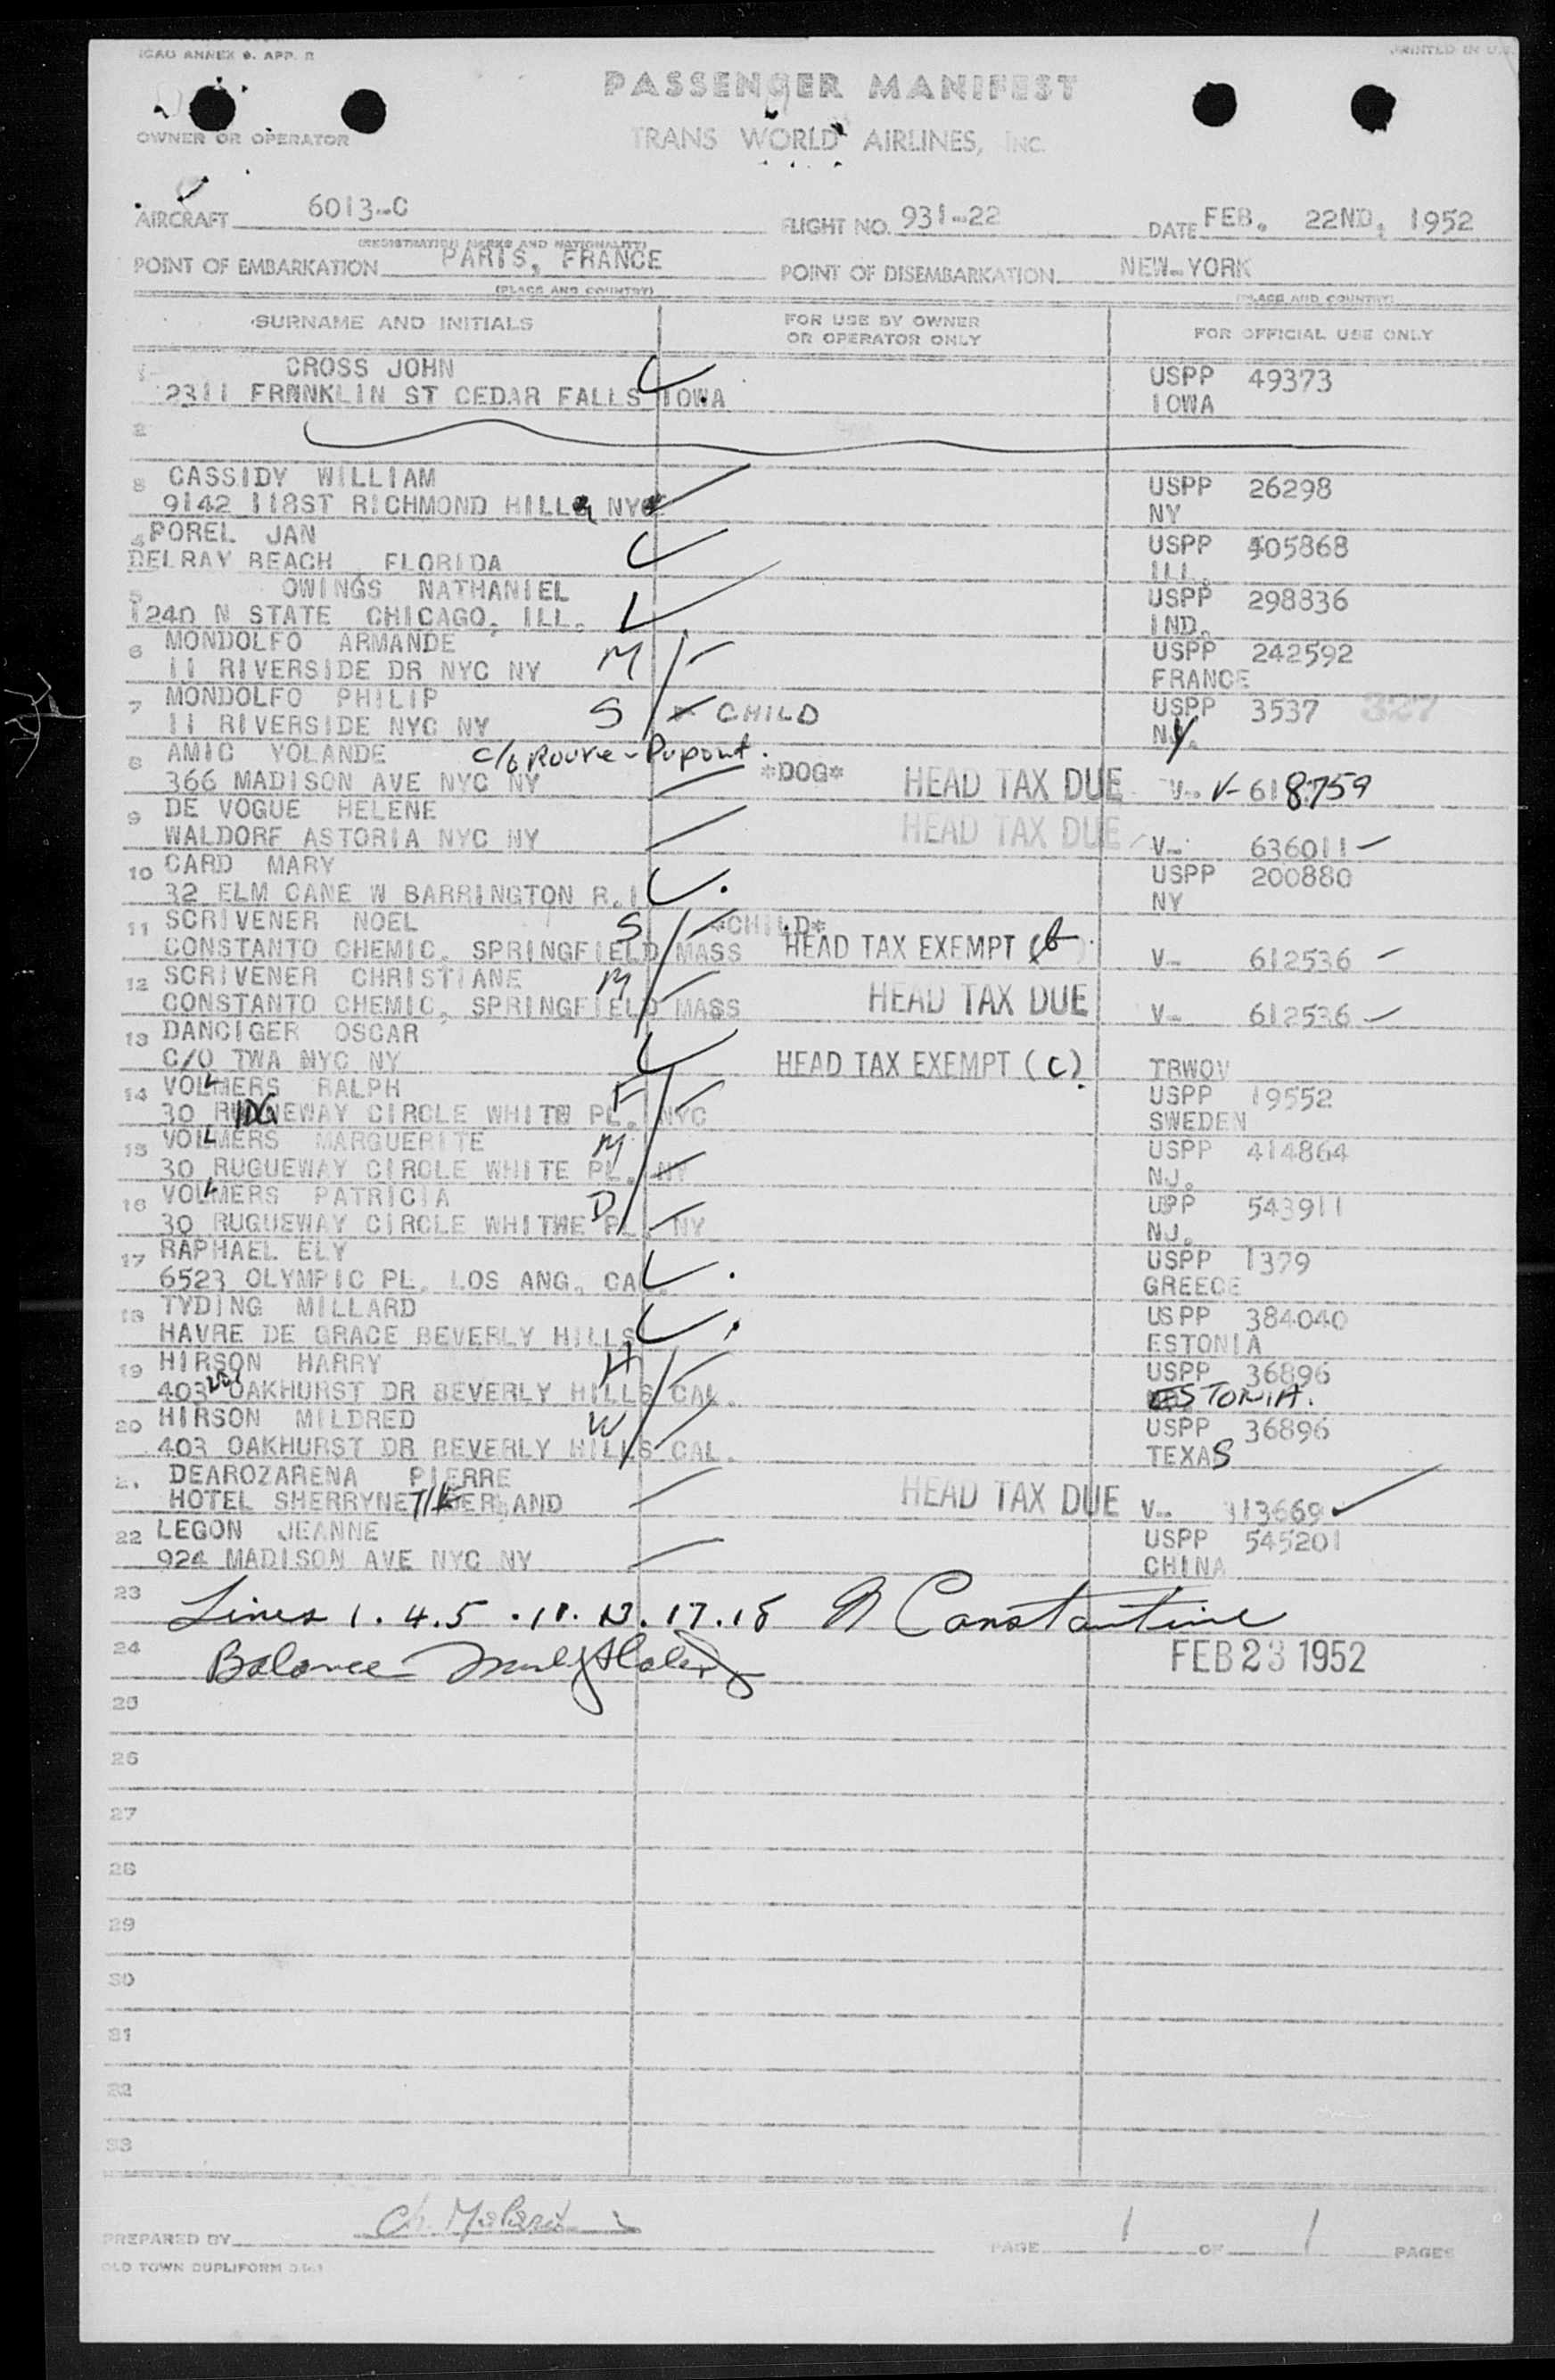 ICAO ANNEX 9. APP. B
PRINTED IN U.S.
PASSENGER MANIFEST
OWNER OR OPERATOR
TRANS WORLD AIRLINES, INC.
AIRCRAFT 6013-C FLIGHT NO. 931-22 DATE FEB. 22ND, 1952
(REGISTRATION MARKS AND NATIONALITY)
POINT OF EMBARKATION PARIS, FRANCE POINT OF DISEMBARKATION NEW-YORK
(PLACE AND COUNTRY) (PLACE AND COUNTRY)
SURNAME AND INITIALS FOR USE BY OWNER OR OPERATOR ONLY FOR OFFICIAL USE ONLY
1 CROSS JOHN USPP 49373
2311 FRNNKLIN ST CEDAR FALLS IOWA IOWA
2
3 CASSIDY WILLIAM USPP 26298
9142 118ST RICHMOND HILL NY NY
4 POREL JAN USPP 405868
DELRAY BEACH FLORIDA ILL.
5 OWINGS NATHANIEL USPP 298836
1240 N STATE CHICAGO, ILL. IND.
6 MONDOLFO ARMANDE USPP 242592
11 RIVERSIDE DR NYC NY M FRANCE
7 MONDOLFO PHILIP USPP 3537 327
11 RIVERSIDE NYC NY S CHILD NY.
8 AMIC YOLANDE c/o Roure-Dupont.
366 MADISON AVE NYC NY *DOG* HEAD TAX DUE V- V- 618759
9 DE VOGUE HELENE
WALDORF ASTORIA NYC NY HEAD TAX DUE V- 636011
10 CARD MARY USPP 200880
32 ELM CANE W BARRINGTON R.I NY
11 SCRIVENER NOEL S *CHILD*
CONSTANTO CHEMIC. SPRINGFIELD MASS HEAD TAX EXEMPT (b V- 612536
12 SCRIVENER CHRISTIANE M
CONSTANTO CHEMIC, SPRINGFIELD MASS HEAD TAX DUE V- 612536
13 DANCIGER OSCAR
C/O TWA NYC NY HEAD TAX EXEMPT (C) TRWOV
14 VOLLMERS RALPH F USPP 19552
30 RIDGEWAY CIRCLE WHITE PL. NYC SWEDEN
15 VOLLMERS MARGUERITE M USPP 414864
30 RUGUEWAY CIRCLE WHITE PL. NY NJ.
16 VOLLMERS PATRICIA D UPP 543911
30 RUGUEWAY CIRCLE WHITWE PL. NY NJ.
17 RAPHAEL ELY USPP 1379
6523 OLYMPIC PL. LOS ANG. CAL. GREECE
18 TYDING MILLARD USPP 384040
HAVRE DE GRACE BEVERLY HILLS ESTONIA
19 HIRSON HARRY H USPP 36896
403 OAKHURST DR BEVERLY HILLS CAL. ESTONIA.
20 HIRSON MILDRED W USPP 36896
403 OAKHURST DR BEVERLY HILLS CAL. TEXAS
21 DEAROZARENA PIERRE
HOTEL SHERRYNETHERLAND HEAD TAX DUE V- 113669
22 LEGON JEANNE USPP 545201
924 MADISON AVE NYC NY CHINA
23 Lines 1. 4. 5 . 10. 13. 17. 18 N Constantine
24 Balance FEB 23 1952
25
26
27
28
29
30
31
32
33
PREPARED BY PAGE 1 OF 1 PAGES
OLD TOWN DUPLIFORM